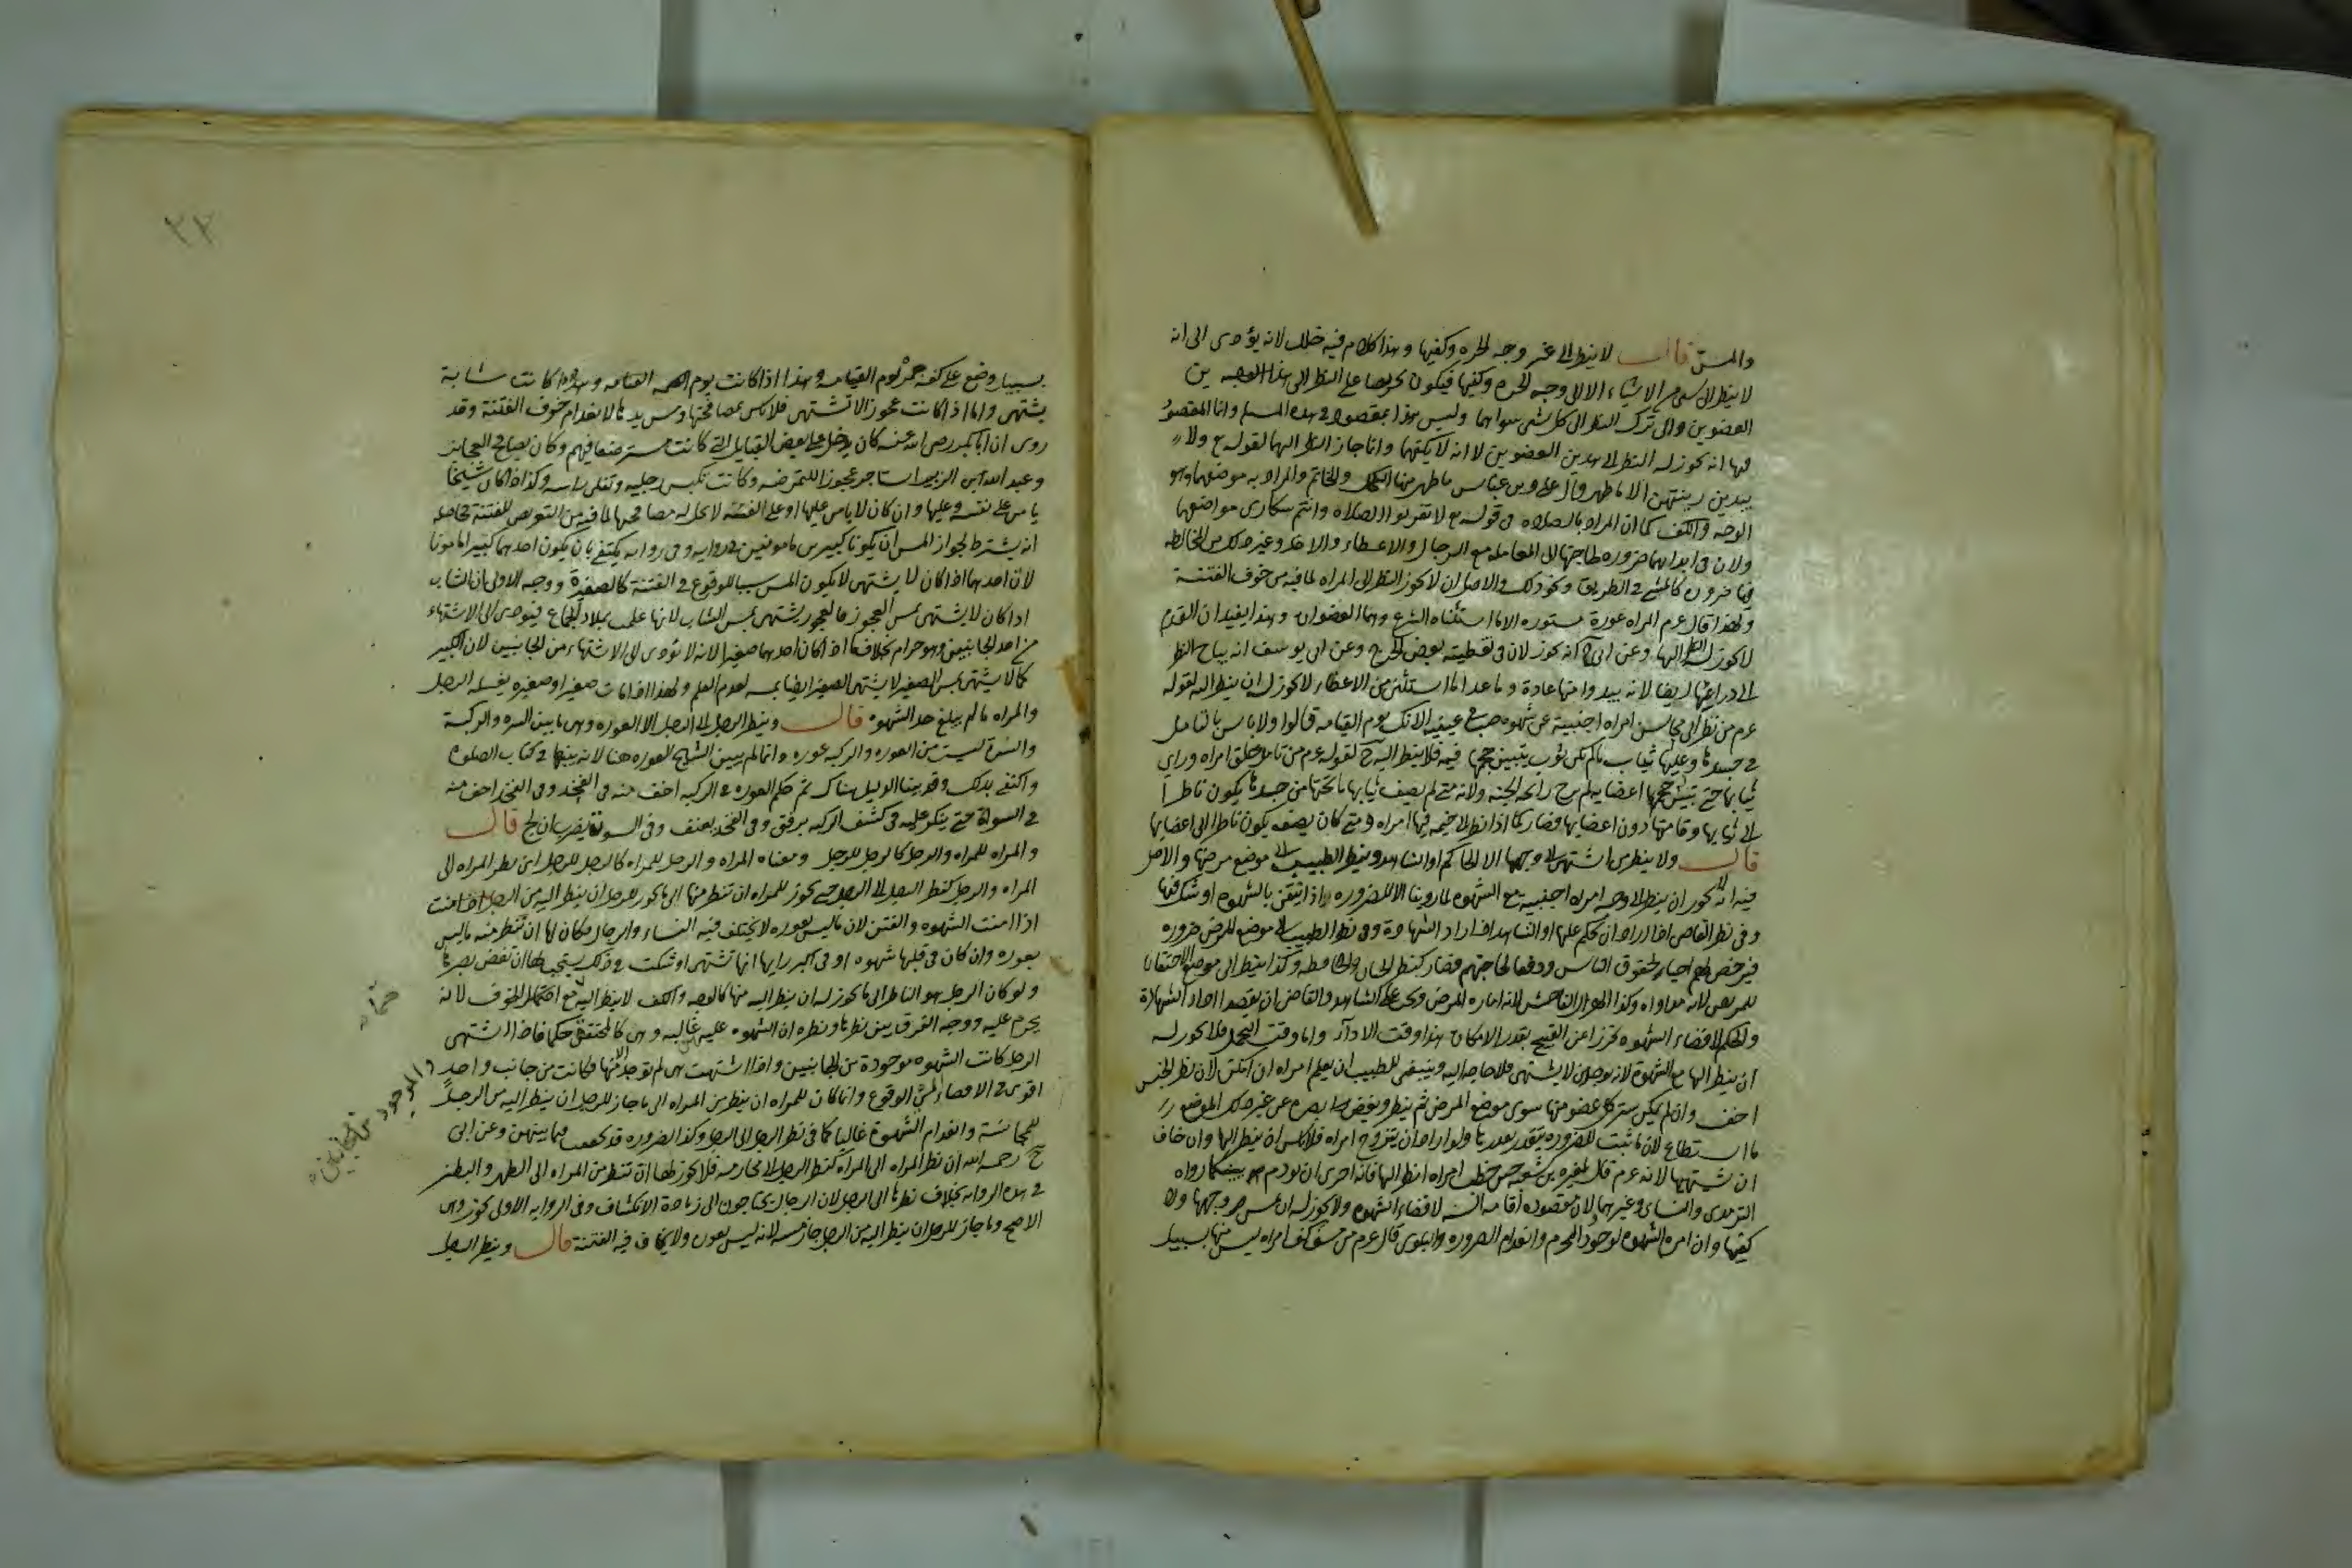 والمس قال لا ينظر الى غير وجه الحره وكفيها وهذا كلام فيه خلل لانه يؤدى الى انه
لا ينظر الى شئ من الاشياء الا الى وجه الحره وكفيها فيكون تحريضا على النظر الى هذا العضوين
العضوين والى ترك النظر الى كل شئ سواهما وليس هذا بمقصود فى هذه المسله وانما المقصود
فيها انه يجوز له النظر الى هذين العضوين لا انه لا يكفهما وانما جاز النظر اليها لقوله تع ولا
يبدين زينتهن الا ما ظهر منها قال على وبن عباس ما ظهر منها الكحل والخاتم والمراد به موضعهما وهو
الوجه والكف كما ان المراد بالصلاه فى قوله تع لا تقربوا الصلاه وانتم سكارى مواضعها
ولان فى ابدائهما ضروره لحاجتها الى المعامله مع الرجال والاعطاء والاخذ وغير ذلك من المخالطه
فيها ضروره كالمشى فى الطريق ونحو ذلك والاصل ان لا يجوز النظر الى المراه لما فيه من خوف الفتنة
ولهذا قال عم المراه عورة مستوره الا ما استثناه الشرع وهما العضوان وهذا يفيد ان القدم
لا يجوز له النظر اليها وعن ابى ح انه يجوز لان فى تغطيته بعض الحرج وعن ابى يوسف انه يباح النظر
الى ذراعيها ايضا لانه يبدوا منها عادة وما عدا ما استثنى من الاعضاء لا يجوز له ان ينظر اليه لقوله
عم من نظر الى محاسن امراه اجنبية عن شهوه صب فى عينيه الانك يوم القيامه قالوا ولا باس بالتامل
فى جسدها وعليها ثياب ما لم يكن ثوب يتبين حجمها فيه فلا ينظر اليه ح لقوله عم من تامل خلق امراه وراى
ثيابها حتى تبين حجم اعضايها لم يرح رائحه الجنه ولانه متى لم يصف ثيابها ما تحتها من جسدها يكون ناظرا
الى ثيابها وقامتها دون اعضايها فصار كما اذا نظر الى خيمه فيها امراه ومتى كان يصفه يكون ناظرا الى اعضايها
قال ولا ينظر من اشتهى الى وجهها الا الحاكم او الشاهد وينظر الطبيب الى موضع مرضها والاصل
فيه انه لا يجوز ان ينظر الى وجه امراه اجنبيه مع الشهوه لما روينا الا للضروره اذا تيقن بالشهوه او شك فيها
وفى نظر القاضى اذا اراد ان يحكم عليها او الشاهد اذا اراد الشهادة وفى نظر الطبيب الى موضع المرض ضروره
فيرخص لهم احياء لحقوق الناس ودفعا لحاجتهم فصار كنظر الختان والخافضه وكذا ينظر الى موضع الاحتقان
للمريض لانه مداواه وكذا الهزال الفاحش لانه اماره المرض ويجب على الشاهد والقاضى ان يقصدا اداء الشهادة
والحكم لا قضاء الشهوه تحرزا عن القبيح بقدر الامكان هذا وقت الادآء واما وقت التحمل فلا يجوز له
ان ينظر اليها مع الشهوة لانه يوجد من لا يشتهى فلا حاجه اليه وينبغى للطبيب ان يعلم امراه ان امكن لان نظر الجنس
اخف وان لم يمكن ستر كل عضو منها سوى موضع المرض ثم ينظر ويغض بصره عن غير ذلك الموضع
ما استطاع لان ما ثبت للضروره يتقدر بقدرها ولو اراد ان يتزوج امراه فلا باس ان ينظر اليها وان خاف
ان يشتهيها لانه عم قال لمغيره بن شعبه حين خطب امراه انظر اليها فانه احرى ان يودم بينكما رواه
الترمدى والنسائى وغيرهما لان مقصوده اقامه السنه لا قضاء الشهوه ولا يجوز له ان يمس وجهها ولا
كفيها وان امن الشهوه لوجود المحرم وانعدام الضروره والبلوى قال عم من مس كف امراه ليس منها بسبيل
٣٢
بسبيل وضع على كفه جمر يوم القيامه وهذا اذا كانت شابة
يشتهى واما اذا كانت عجوز الا تشتهى فلا باس بمصافحتها ومس يدها لانعدام خوف الفتنة وقد
روى ان ابا بكر رضى الله عنه كان يدخل على بعض القبايل التى كانت مسترضعا فيهم وكان يصافح العجايز
وعبد الله ابن الزبير استاجر عجوزا لتمرضه وكانت تكبس رجليه وتفلى راسه وكذا اذا كان شيخا
يامن على نفسه وعليها وان كان لا يامن عليها او على نفسه لا تحل له مصافحتها لما فيه من التعريض للفتنة فحاصله
انه يشترط لجواز المس ان يكونا كبيرين مامونين فى روايه وفى روايه يكتفى بان يكون احدهما كبيرا مامونا
لان احدهما اذا كان لا يشتهى لا يكون المس سببا للوقوع فى الفتنة كالصغيرة ووجه الاولى ان الشاب
اذا كان لا يشتهى بمس العجوز فالعجوز يشتهى بمس الشاب لانها علمت بملاذ الجماع فيؤدى الى الاشتهاء
من احد الجانبين وهو حرام بخلاف ما اذا كان احدهما صغيرا لانه لا يؤدى الى الاشتهاء من الجانبين لان الكبير
كما لا يشتهى بمس الصغير لا يشتهى الصغير ايضا بمسه لعدم العلم ولهذا اذا مات صغيرا وصغيره يغسله الرجل
والمراه ما لم يبلغ حد الشهوه قال وينظر الرجل الى الرجل الا العوره وهى ما بين السره والركبة
والسرة ليست من العوره والركبه عوره وانما لم يبين الشيخ العوره هنا لانه بينها فى كتاب الصلوه
واكتفى بذلك وقد بينا الدليل هناك ثم حكم العوره فى الركبه اخف منه فى الفخذ وفى الفخذ اخف منه
فى السواة حتى ينكر عليه فى كشف الركبه برفق وفى الفخذ بعنف وفى السوءة يضرب ان لج قال
والمراه للمراه والرجل كالرجل للرجل ومعناه المراه والرجل للمراه كالرجل للرجل اى نظر المراه الى
المراه والرجل كنظر الرجل الى الرجل حتى يجوز للمراه ان تنظر منها الى ما يجوز للرجل ان ينظر اليه من الرجل اذا امنت
اذا امنت الشهوه والفتن لان ما ليس بعوره لا يختلف فيه النساء والرجال فكان لها ان تنظر منه ما ليس
بعوره وان كان فى قلبها شهوه او فى اكبر رايها انها تشتهى او شكت فى ذلك يستحب لها ان تغض بصرها
ولو كان الرجل هو الناظر الى ما يجوز له ان ينظر اليه منها كالوجه والكف لا ينظر اليه مع الخوف لانه
يحرم عليه ووجه الفرق بين نظرها ونظره ان الشهوه عليهن غالبه وهى كالمتحقق حكما فاذا اشتهى
الرجل كانت الشهوه موجودة من الجانبين واذا اشتهت هى لم توجد الا منها فكانت من جانب واحد
والموجود من الجانبين
اقوى فى الافضاء الى الوقوع وانما كان للمراه ان ينظر من المراه الى ما جاز للرجل ان ينظر اليه من الرجل
للمجانسة وانعدام الشهوة غالبا كما فى نظر الرجل الى الرجل وكذا الضروره قد تحققت فيما بينهن وعن ابى
ح رحمه الله ان نظر المراه الى المراه كنظر الرجل الى محارمه فلا يجوز لها ان تنظر من المراه الى الظهر والبطن
فى هذه الروايه بخلاف نظرها الى الرجل لان الرجال يحتاجون الى زيادة الانكشاف وفى الروايه الاولى يجوز وهى
الاصح وما جاز للرجل ان ينظر اليه من الرجل جاز مسه لانه ليس بعوره ولا يخاف فيه الفتنة قال وينظر الرجل